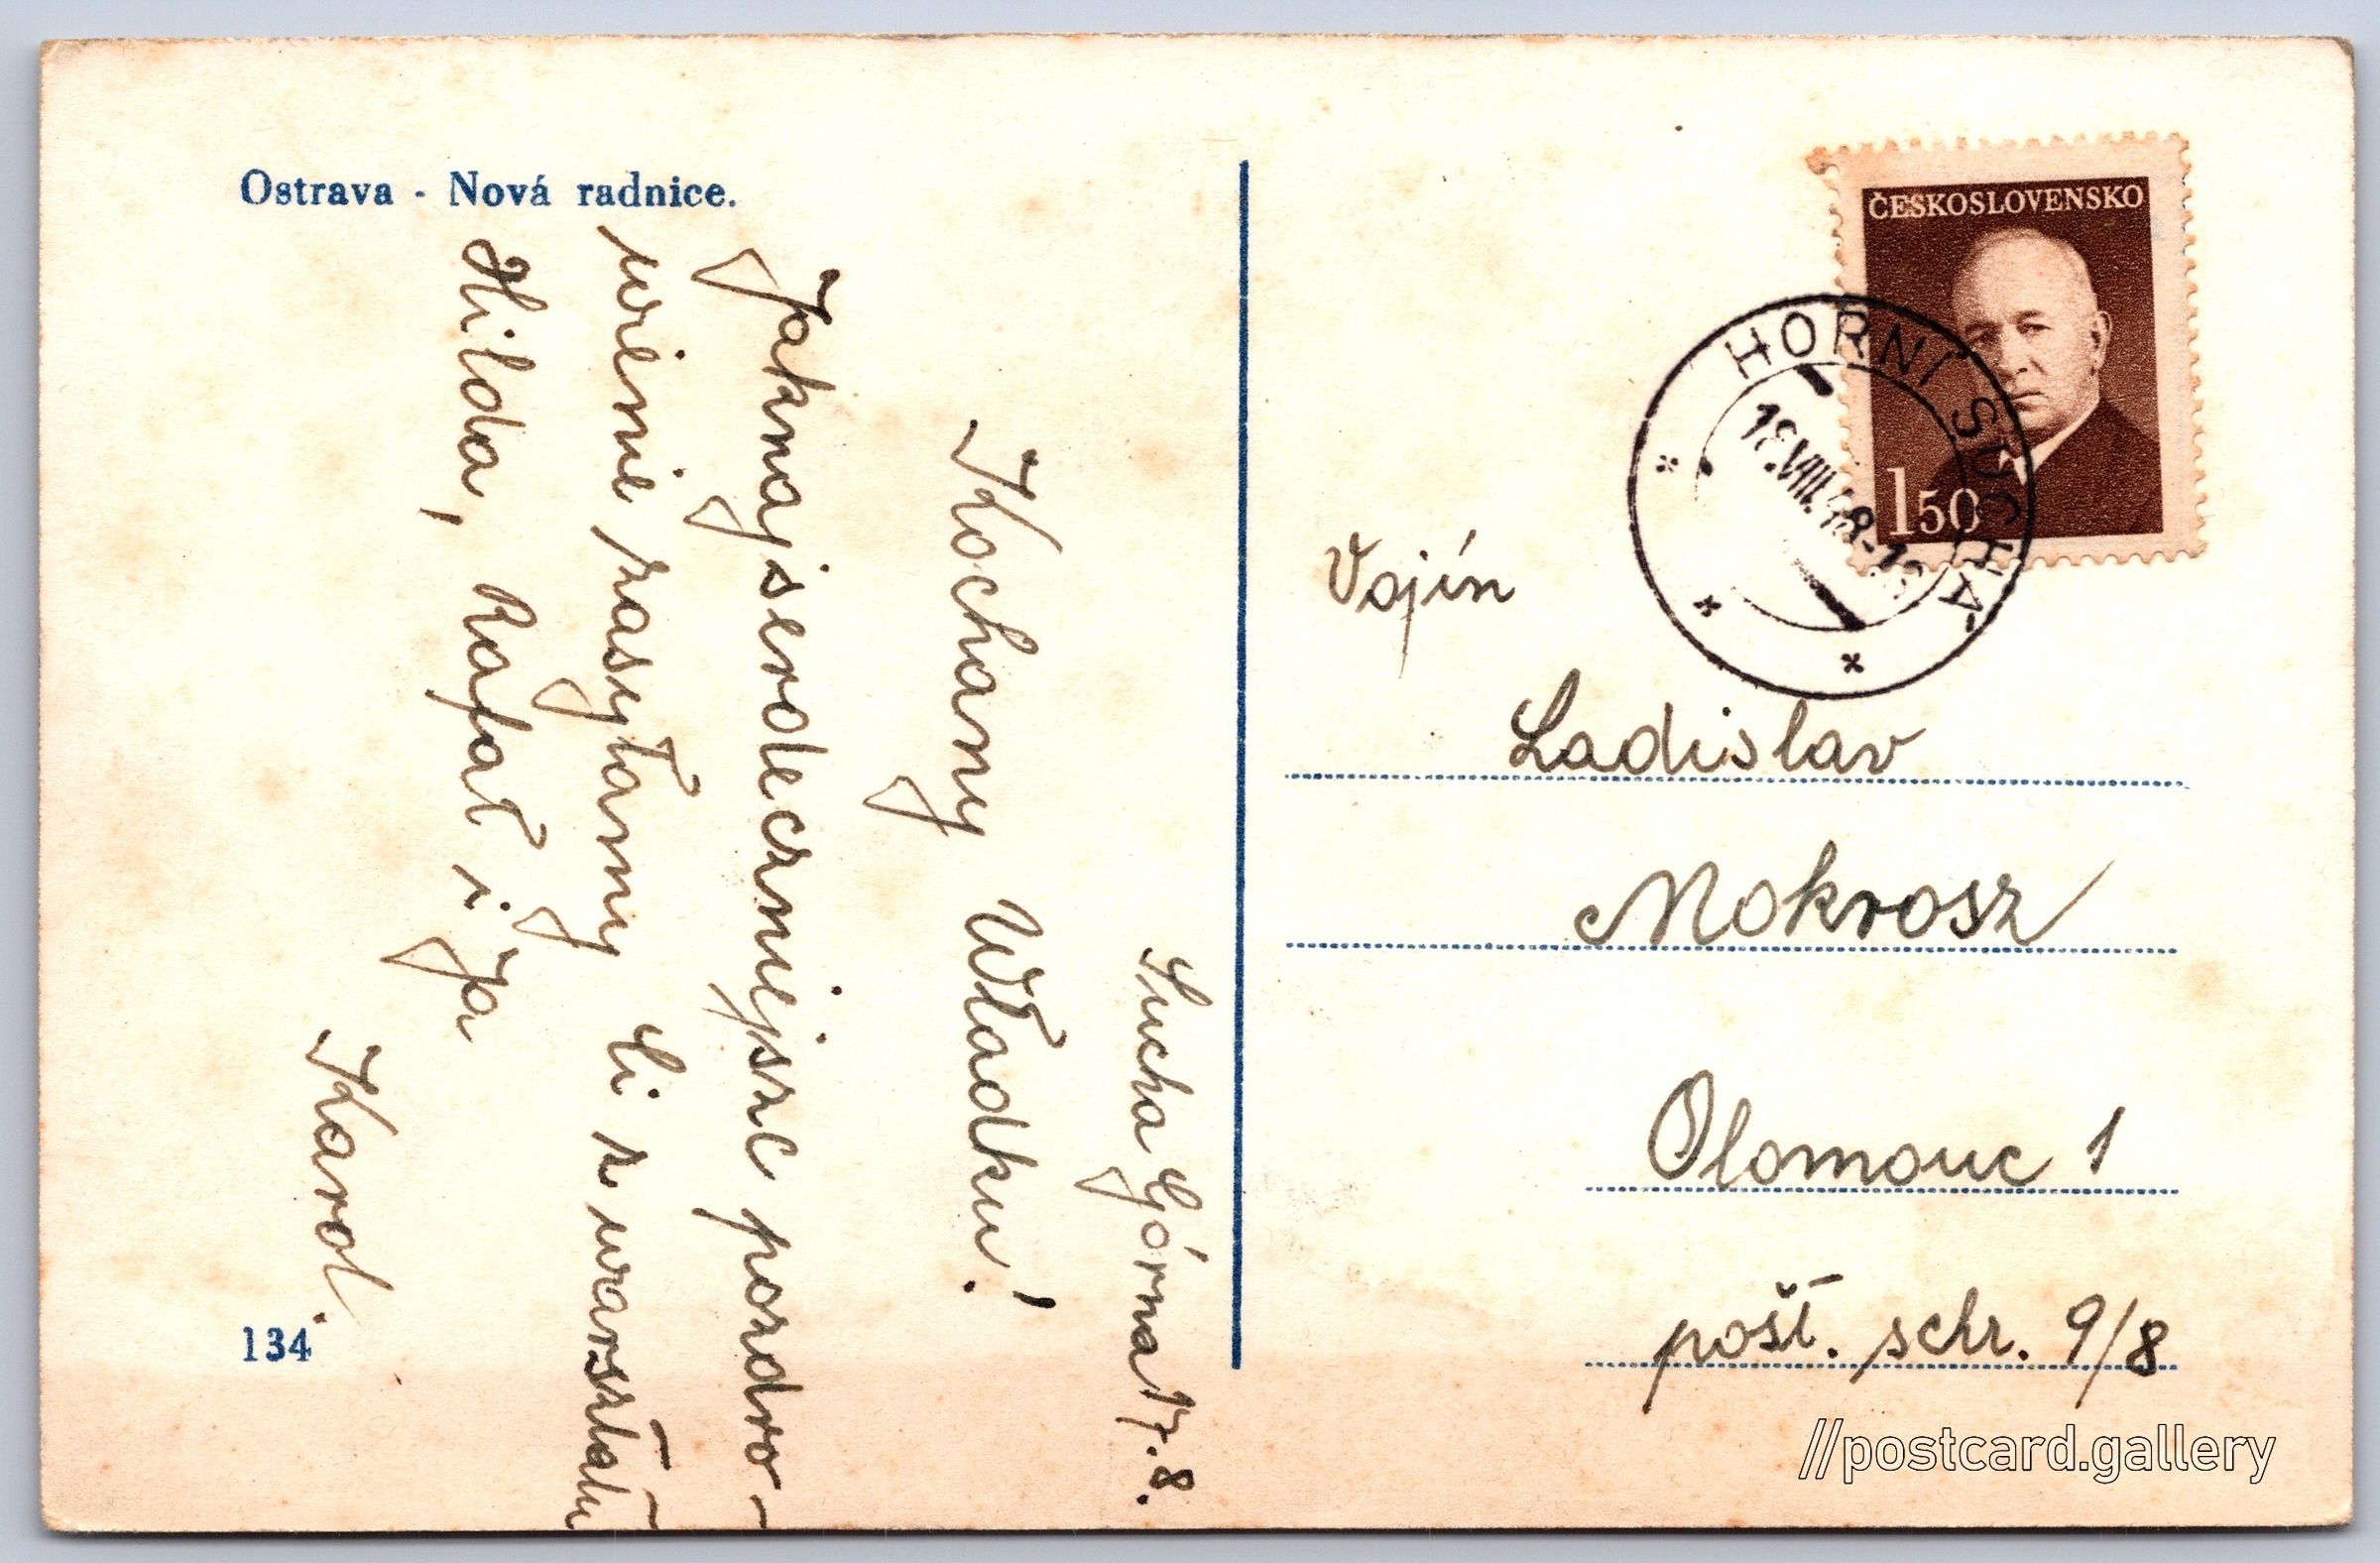 Ostrava - Nová radnice.
Sucha Górna 17.8.
Kochany Władku!
Jaknajserdeczniejsze pozdro-
wienie zasyłamy Ci z warsztatu
Hilda, Rafał i Ja
Karol.
134
ČESKOSLOVENSKO
150
HORNÍ SUCHÁ
18.VIII.48-
Vojín
Ladislav
Mokrosz
Olomouc 1
pošt. schr. 9/8
//postcard.gallery